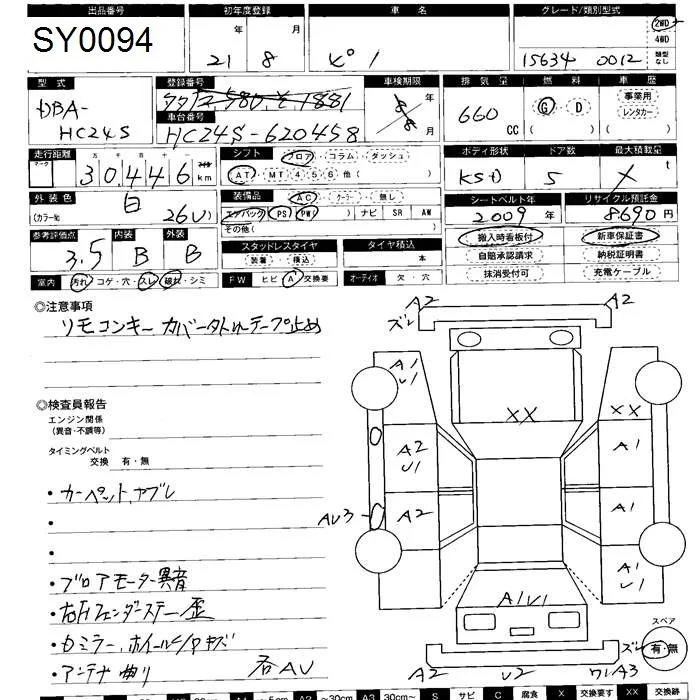 出品番号 初年度登録 車 名 グレード/類別型式
SY0094
21年 8月 ピノ 15634 0012
2WD
4WD
類型なし
型 式 登録番号 車検期限 排気量 燃 料 車 歴
DBA-
HC24S
580 そ 1881
8年
8月
660 CC
G・D
( )
事業用
レンタカー
( )
車台番号
HC24S-620458
走行距離 シフト ボディ形状 ドア数 最大積載量
マーク 万 千 百 十 マイル
30,446 km
フロア・コラム・ダッシュ
AT・MT 4 5 6 他( )
5 t
外 装 色 装備品 シートベルト年 リサイクル預託金
(カラー№ 白 26U)
AC・クーラー・無し
エアバッグ( ) PS PW ナビ SR AW
その他( )
2009年 8690円
参考評価点 内装 外装
3.5 B B
スタッドレスタイヤ タイヤ積込
装着・積込 本
搬入時看板付 新車保証書
自賠承認請求 納税証明書
抹消受付可 充電ケーブル
室内 汚れ・コゲ・穴・スレ・破れ・シミ FW ヒビ A 交換要 オーディオ 欠 穴
◎注意事項
リモコンキー カバー外レテープ止め
◎検査員報告
エンジン関係
(異音・不調等)
タイミングベルト
交換 有・無
・カーペット、ヤブレ
・
・
・ブロアモーター異音
・右Fフェンダーステー歪
・ドミラー、ホイールC/Aキズ
・アンテナ曲り 右AU
A2 A2
ズレ
A1
U1
XX XX
A2
U1
A1
AU3 A2 A1
A1
U1
A1U1
スペア
有・無
ズレ
A2 U2 A3
A2 ～30cm A3 30cm～ S サビ C 腐食 X 交換要す XX 交換跡